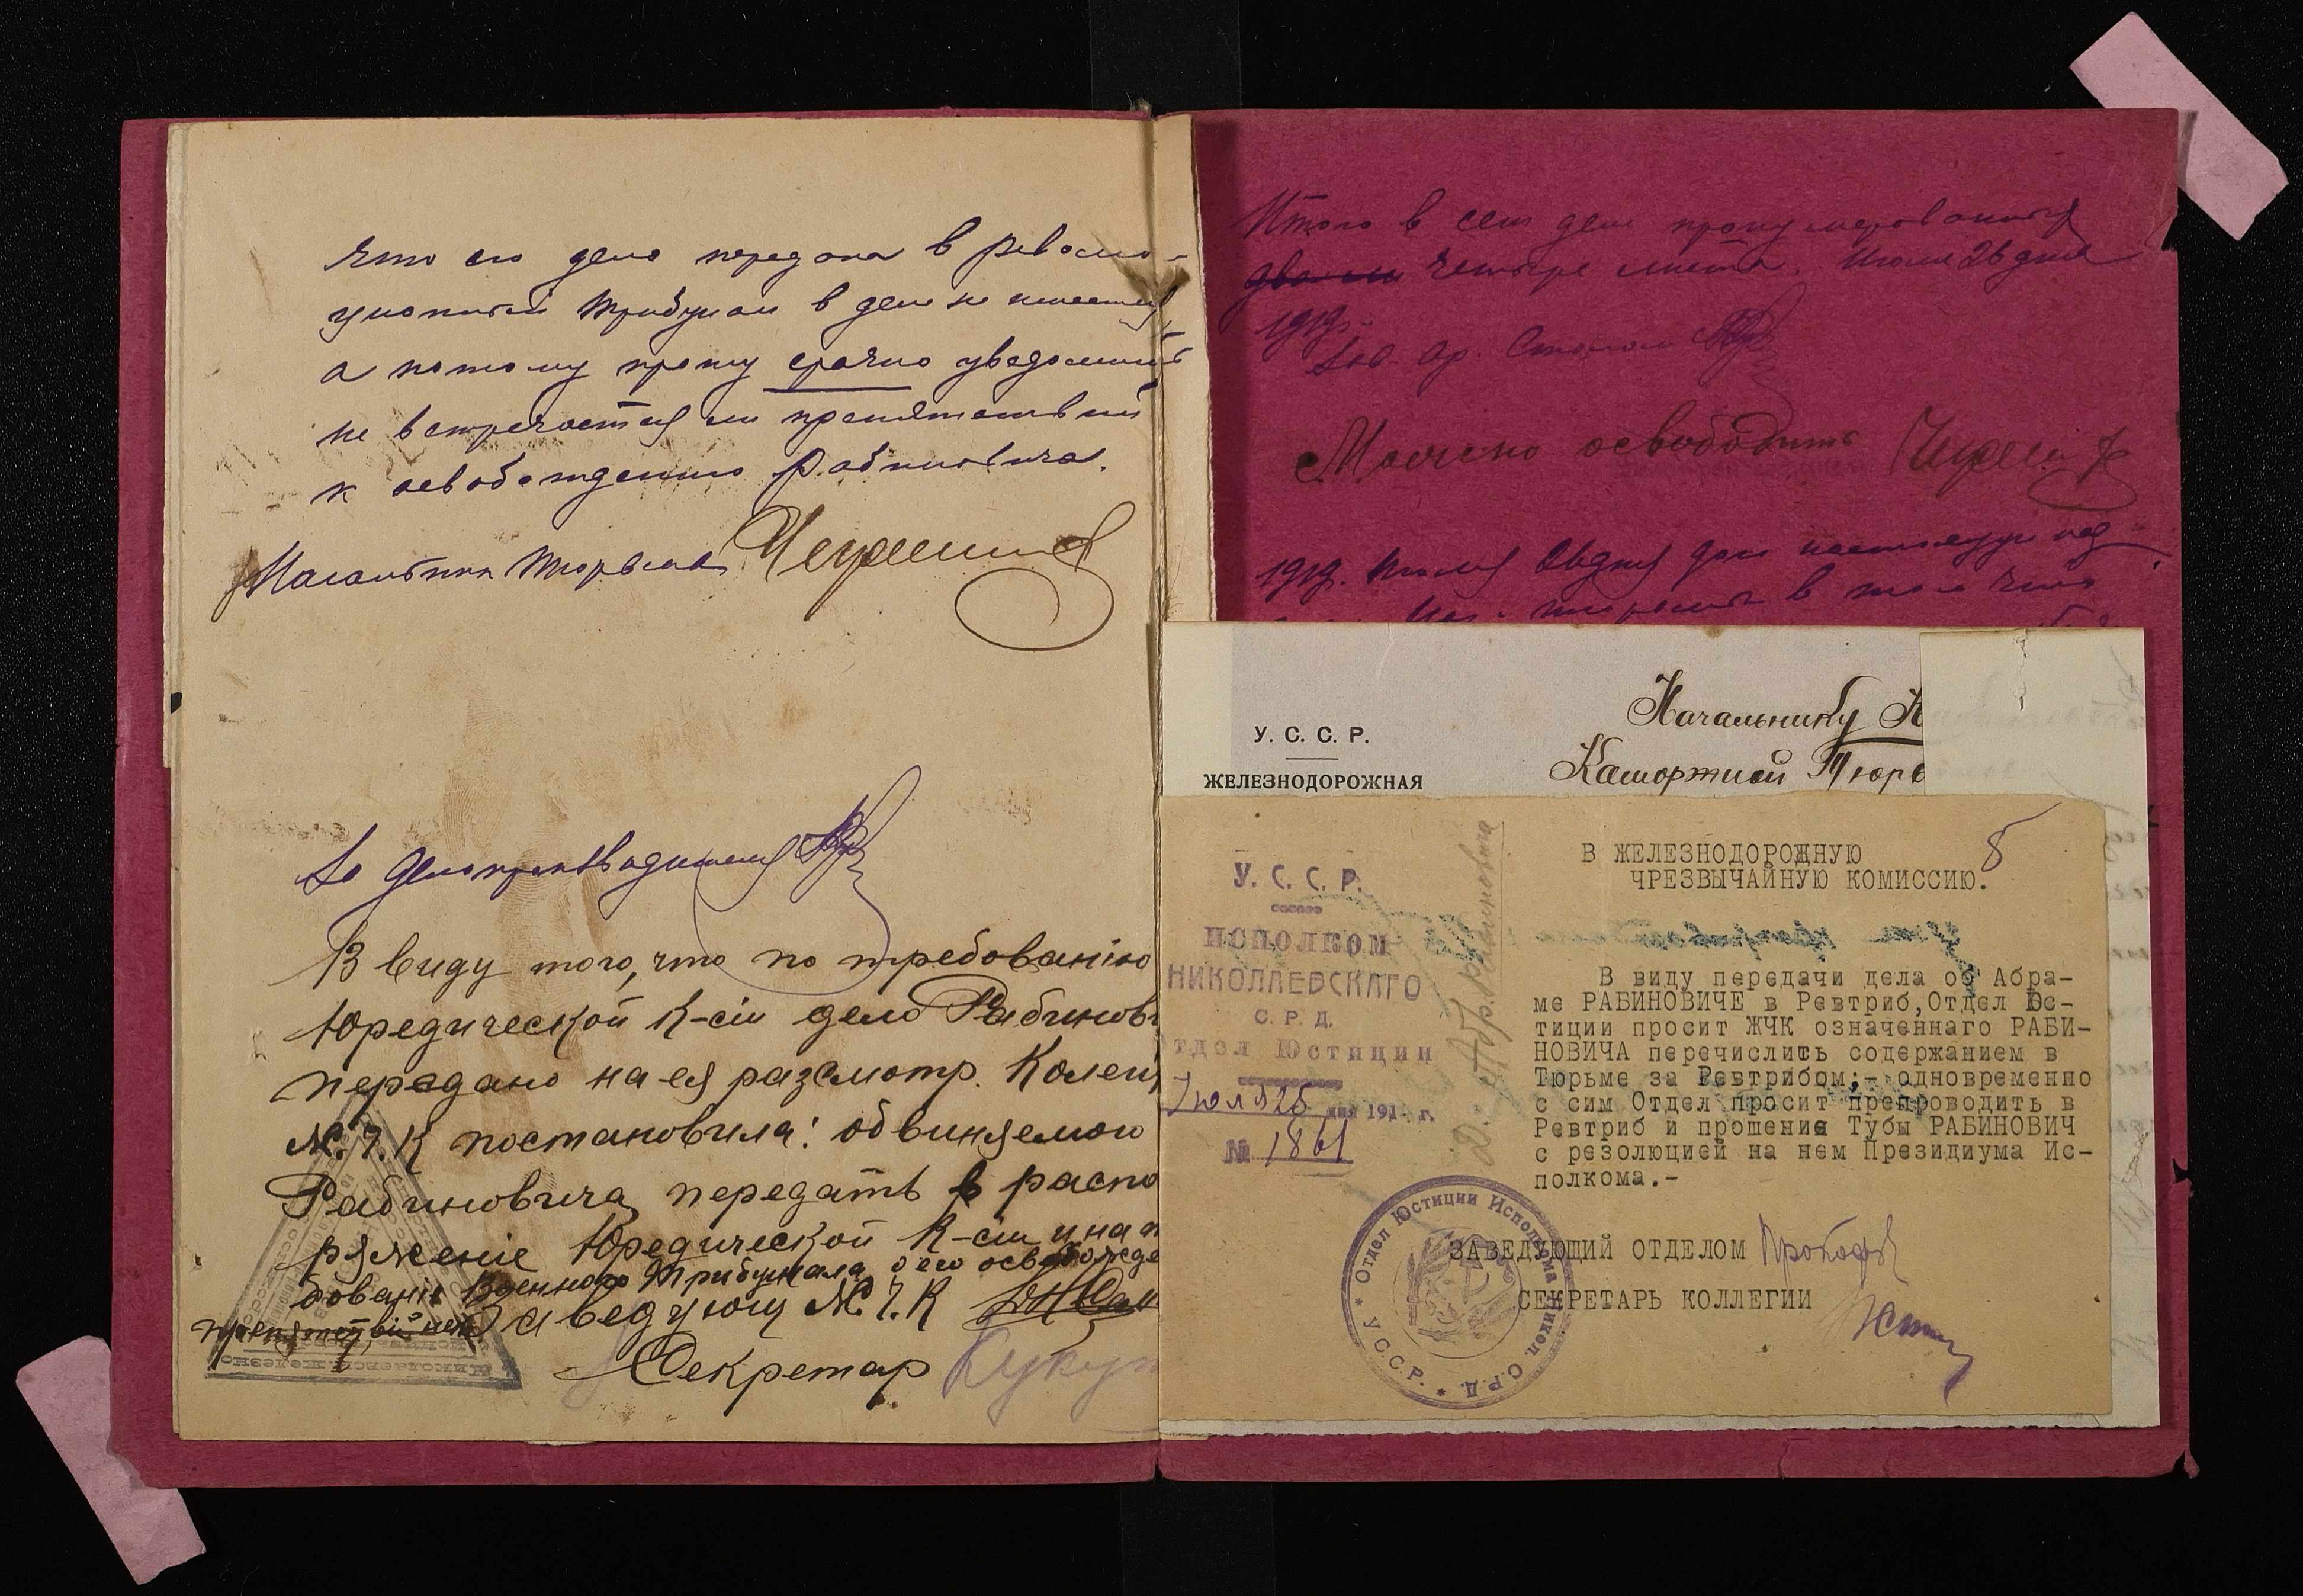 что его дело передано в револю-
ционный трибунал в деле не имеется,
а потому прошу срочно уведомить
не встречается ли препятствий
к освобождению Рабиновича.
Начальник тюрьмы
За делопроизводителя
В виду того, что по требованію
Юредической К-сіи дело Рабинов
передано на ея разсмотр. Колег
Ж.Ч.К постановила: обвиняемого
Рабиновича передать в распо
ряженіе Юредической К-сіи и на
бованія Военного Трибунала о его освобожде
препятствій нет Заведующ Ж.Ч.К
Секретар
Итого в сем деле пронумерованных
четыре листа. Июля 26 дня
1919г.
Можно освободить
1919г. Июля 26 дня дан
в том что
У. С. С. Р.
ЖЕЛЕЗНОДОРОЖНАЯ
Начальнику К
Каторжной Тюрь
У. С. С. Р.
ИСПОЛКОМ
НИКОЛАЕВСКАГО
С. Р. Д.
тдел Юстиции
Июля 25 дня 191 г.
№ 1861
Абр. Рабиновича
8
В ЖЕЛЕЗНОДОРОЖНУЮ
ЧРЕЗВЫЧАЙНУЮ КОМИССИЮ.
В виду передачи дела об Абра-
ме РАБИНОВИЧЕ в Ревтриб,Отдел Юс-
тиции просит ЖЧК означеннаго РАБИ-
НОВИЧА перечислить содержанием в
Тюрьме за Ревтрибом;- одновременно
с сим Отдел просит препроводить в
Ревтриб и прошение Тубы РАБИНОВИЧ
с резолюцией на нем Президиума Ис-
полкома.-
ЗАВЕДУЮЩИЙ ОТДЕЛОМ
СЕКРЕТАРЬ КОЛЛЕГИИ
* Отдел Юстиции Исполкома Никол. С.Р.Д. * У.С.С.Р.